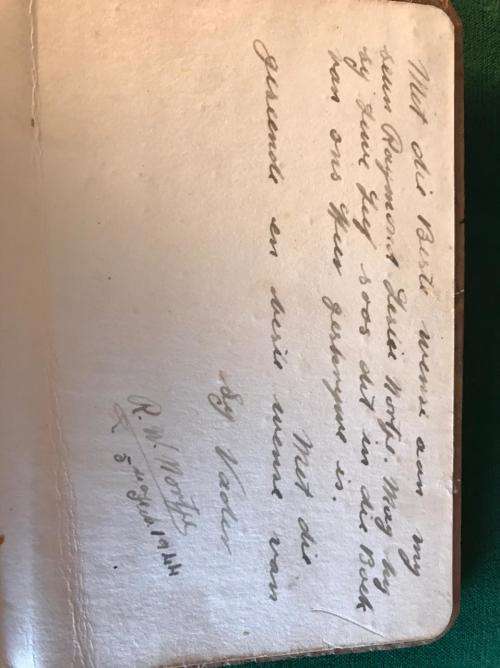 Met die Beste wense aan my
seun Raymond Leslie Nortje. Mag hy
sy lewe lyf soos dit in die Boek
van ons Heer geskrywe is.
Met die
geseende en beste wense van
Sy Vader
R. W. Nortje
5 August 1944